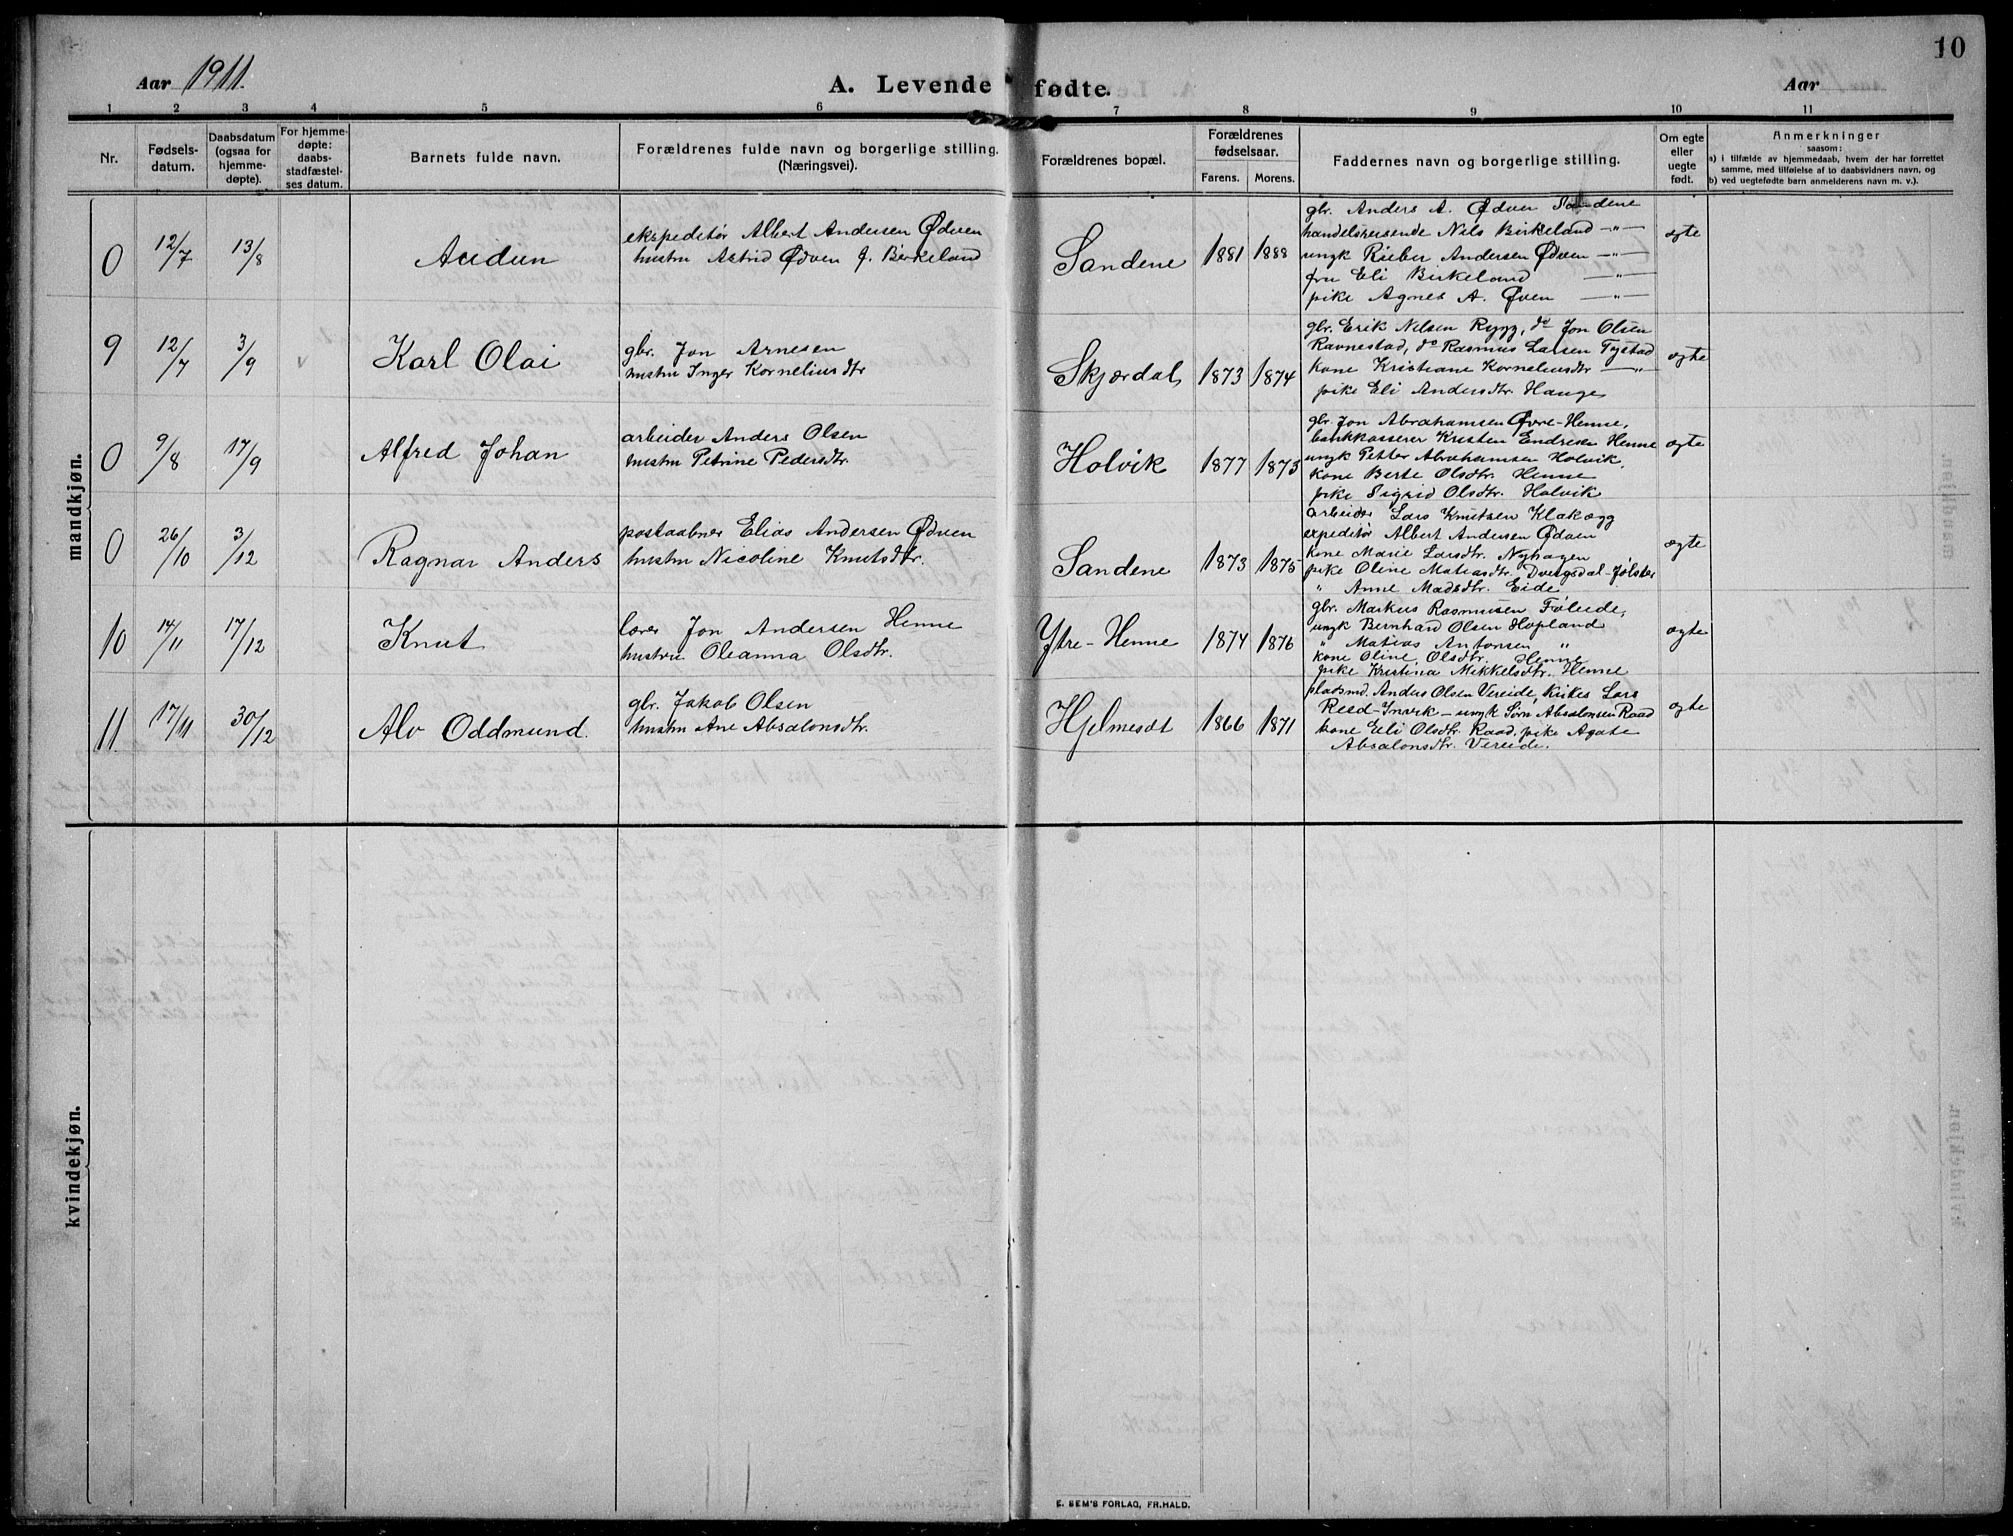 10
Aar 1911.
A. Levende fødte.
Aar
1 2 3 4 5 6 7 8 9 10 11
Nr.
Fødsels-
datum.
Daabsdatum
(ogsaa for
hjemme-
døpte).
For hjemme-
døpte:
daabs-
stadfæstel-
ses datum.
Barnets fulde navn.
Forældrenes fulde navn og borgerlige stilling.
(Næringsvei).
Forældrenes bopæl.
Forældrenes
fødselsaar.
Farens. Morens.
Faddernes navn og borgerlige stilling.
Om egte
eller
uegte
født.
Anmerkninger
saasom:
a) i tilfælde av hjemmedaab, hvem der har forrettet
samme, med tilføielse af to daabsvidners navn, og
b) ved uegtefødte barn anmelderens navn m. v.).
mandkjøn.
0 12/7 13/8 Audun
ekspeditør Albert Andersen Ødven
hustru Astrid Ødven f. Birkeland
Sandene 1881 1888
gbr. Anders A. Ødven Sandene
handelsreisende Nils Birkeland —"—
ungk Rieber Andersen Ødven —"—
fru Eli Birkeland —"—
pike Agnes A. Øven —"—
egte
9 12/7 3/9 v Karl Olai
gbr. Jon Arnesen
hustru Inger Korneliusdtr
Skjærdal 1873 1874
gbr. Erik Nilsen Rygg, do Jon Olsen
Ravnestad, do Rasmus Larsen Tystad
kone Kristiane Korneliusdtr —"—
pike Eli Andersdtr. Hauge
egte
0 9/8 17/9 Alfred Johan
arbeider Anders Olsen
hustru Petrine Pedersdtr.
Holvik 1877 1873
gbr. Jon Abrahamsen Øvre-Henne,
bankkasserer Kristen Endresen Henne
ungk Petter Abrahamsen Holvik,
kone Berte Olsdtr. Henne
pike Sigrid Olsdtr. Holvik
egte
0 26/10 3/12 Ragnar Anders
postaabner Elias Andersen Ødven
hustru Nicoline Knutsdtr.
Sandene 1873 1875
arbeider Lars Knutsen Klakegg
expeditør Albert Andersen Ødven
kone Marie Larsdtr. Nyhagen
pike Oline Matiasdtr. Dvergsdal-Jølster
" Anne Madsdtr. Eide
egte
10 14/11 17/12 Knut
lærer Jon Andersen Henne
hustru Oleanna Olsdtr.
Ytre-Henne 1874 1876
gbr. Markus Rasmusen Føleide,
ungk Bernhard Olsen Hopland
" Matias Antonsen "
kone Oline Olsdtr. Henne
pike Kristina Mikkelsdtr. Henne
egte
11 17/11 30/12 Alv Oddmund.
gbr. Jakob Olsen
hustru Ane Absalonsdtr.
Hjelmesdt 1866 1871
pladsmd. Anders Olsen Vereide, Lars
Reed-Invik — ungk Sørn Absalonsen Raad
kone Eli Olsdtr. Raad, pike Agate
Absalonsdtr. Vereide.
egte
kvindekjøn.
E. SEM'S FORLAG, FR.HALD.